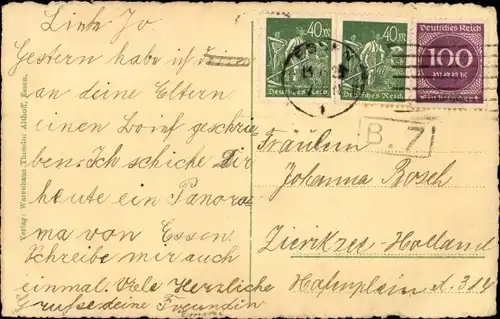 Liebe Jo
Gestern habe ich
an deine Eltern
einen Brief geschrie
ben. Ich schicke Dir
heute ein Panora
ma von Essen
Schreibe mir auch
einmal. Viele Herzliche
deine Freundin
Verlag: Warenhaus Theodor Althoff, Essen.
40M
Deutsches Reich
40M
Deutsches Reich
Deutsches Reich
100
Mark
ESSEN
B. 7
Fräulein
Johanna Bosch
Zierikzee-Holland
Hafenplein A. 312